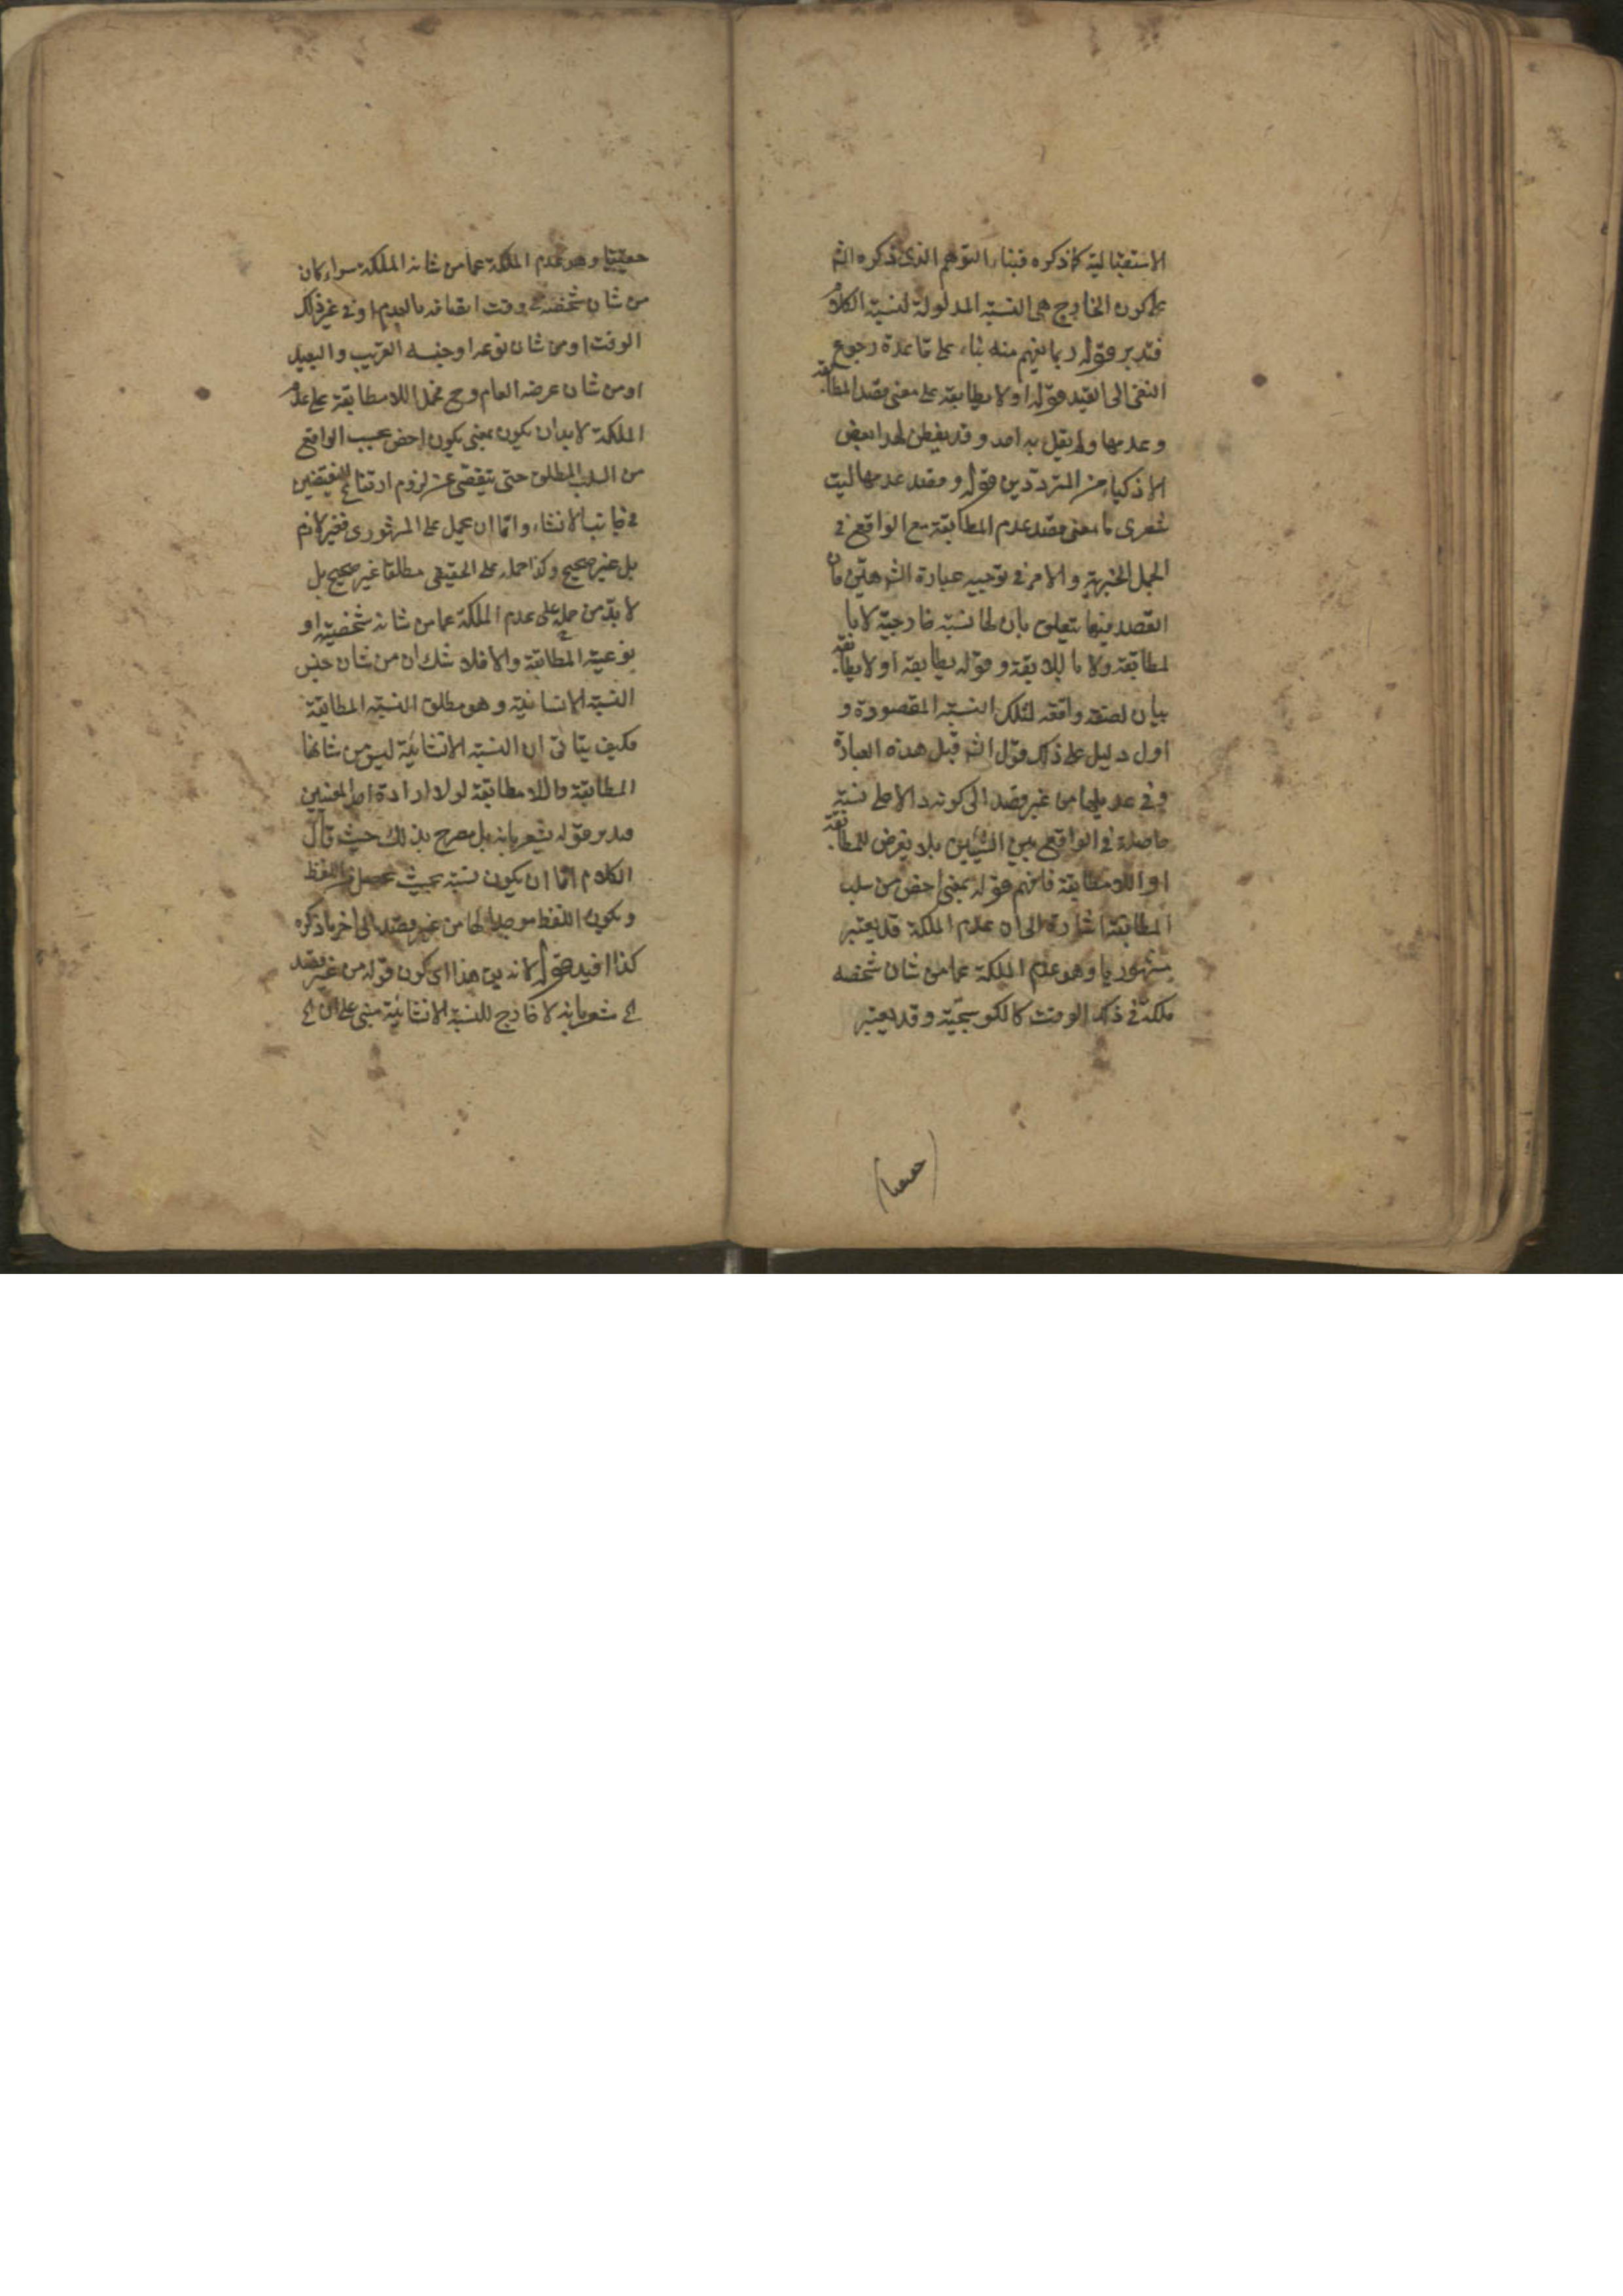 الاستقبالية كما ذكره فبناء التوهم الذى ذكره الش
على كون الخارج هى النسبة المدلولة لنسبة الكلام
فتدبر قوله ربما يفهم منه بناء على قاعدة رجوع
النفى الى القيد قوله اولا يطابقه على معنى قصد المطابقة
وعدمها ولم يقل به احد وقد يفطن لهذا بعض
الاذكياء من المترددين قوله وقصد عدمها ليت
شعرى ما معنى قصد عدم المطابقة مع الواقع فى
الجمل الخبرية والامر فى توجيه عبارة الش هين فان
القصد فيها يتعلق بان لها نسبة خارجية لا با
لمطابقة ولا باللا وقوله يطابقه اولا يطابقه
بيان لصفة واقعه لتلك النسبة المقصودة و
اول دليل على ذلك قول الش قبل هذه العبارة
وفى عد من غير قصد الى كونه دالا على نسبة
حاصلة فى الواقع بين الشيئين بلا تعرض للمطابقة
او اللامطابقة فافهم قوله بمعنى اخص من سلب
المطابقة اشارة الى ان عدم الملكة قد يعتبر
مشهوريا وهو عدم الملكة عما من شان شخصه
ملكة فى ذلك الوقت كالكوسجية وقد يعتبر
حقيقيا
حقيقيا وهو عدم الملكة عما من شانه الملكة سواء كان
من شان شخصه فى وقت اتصافه بالعدم او فى غير ذلك
الوقت او من شان نوعه او جنسه القريب والبعيد
او من شان عرضه العام وح فحمل اللامطابقة على عدم
الملكة لا بد ان يكون بمعنى يكون اخص بحسب الواقع
من السلب المطلق حتى يتقصى عن لزوم ارتفاع النقيضين
فى جانب الانشاء واما ان يحمل على المشهورى فغير لازم
بل غير صحيح وكذا حمله على الحقيقى مطلقا غير صحيح بل
لا بد من حمله على عدم الملكة عما من شانه شخصية او
نوعية المطابقة والا فلا شك ان من شان جنس
النسبة الانشائية وهو مطلق النسبة المطابقة
فكيف يتأتى ان النسبة الانشائية ليس من شانها
المطابقة واللامطابقة لولا ارادة احد المعنيين
فتدبر قوله يشعر بانه بل مصرح بذلك حيث قال
الكلام اما ان يكون نسبة بحيث تحصل من اللفظ
ويكون اللفظ موجدا لها من غير قصد الى اخر ما ذكره
كذا افيد قوله لانه بين هذا اى كون قوله من غير قصد
الخ مشعر بانه لا خارج للنسبة الانشائية مبنى على ان الخ